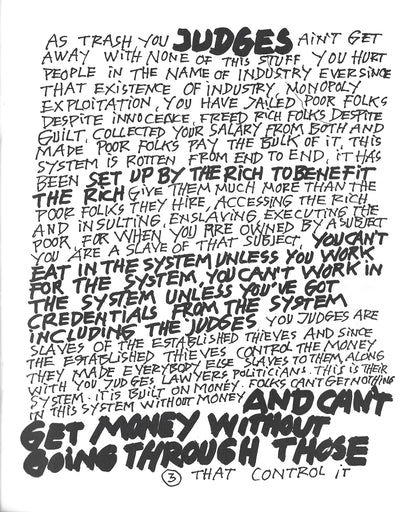 AS TRASH, YOU JUDGES AIN'T GET
AWAY WITH NONE OF THIS STUFF, YOU HURT
PEOPLE IN THE NAME OF INDUSTRY EVER SINCE
THAT EXISTENCE OF INDUSTRY, MONOPOLY
EXPLOITATION, YOU HAVE JAILED POOR FOLKS
DESPITE INNOCENCE, FREED RICH FOLKS DESPITE
GUILT, COLLECTED YOUR SALARY FROM BOTH AND
MADE POOR FOLKS PAY THE BULK OF IT. THIS
SYSTEM IS ROTTEN FROM END TO END, IT HAS
BEEN SET UP BY THE RICH TO BENEFIT
THE RICH GIVE THEM MUCH MORE THAN THE
POOR FOLKS THEY HIRE, ACCESSING THE RICH
AND INSULTING, ENSLAVING, EXECUTING THE
POOR, FOR WHEN YOU ARE OWNED BY A SUBJECT
YOU ARE A SLAVE OF THAT SUBJECT, YOU CAN'T
EAT IN THE SYSTEM UNLESS YOU WORK
FOR THE SYSTEM, YOU CAN'T WORK IN
THE SYSTEM UNLESS YOU'VE GOT
CREDENTIALS FROM THE SYSTEM
INCLUDING THE JUDGES YOU JUDGES ARE
SLAVES OF THE ESTABLISHED THIEVES AND SINCE
THE ESTABLISHED THIEVES CONTROL THE MONEY
THEY MADE EVERYBODY ELSE SLAVES TO THEM, ALONG
WITH YOU JUDGES LAWYERS POLITICIANS. THIS IS THEIR
SYSTEM. IT IS BUILT ON MONEY. FOLKS CAN'T GET NOTHING
IN THIS SYSTEM WITHOUT MONEY AND CAN'T
GET MONEY WITHOUT
GOING THROUGH THOSE
3 THAT CONTROL IT